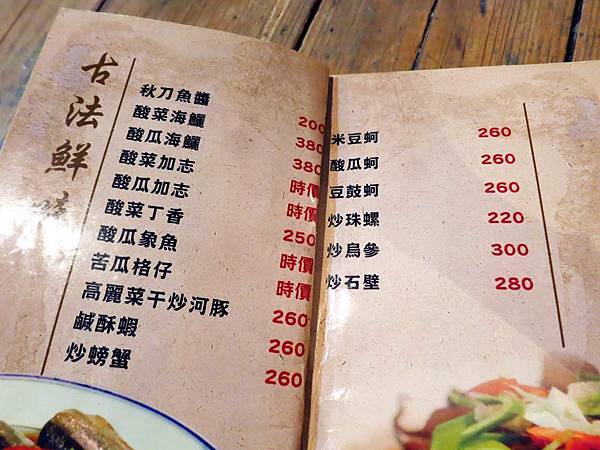 古法鮮味
秋刀魚醬 200
酸菜海鱺 380
酸瓜海鱺 380
酸菜加志 時價
酸瓜加志 時價
酸菜丁香 250
酸瓜象魚 時價
苦瓜格仔 時價
高麗菜干炒河豚 260
鹹酥蝦 260
炒螃蟹 260
米豆蚵 260
酸瓜蚵 260
豆鼓蚵 260
炒珠螺 220
炒鳥參 300
炒石壁 280